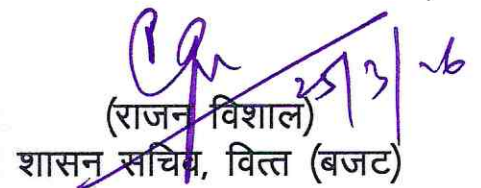 25/3/26
(राजन विशाल)
शासन सचिव, वित्त (बजट)